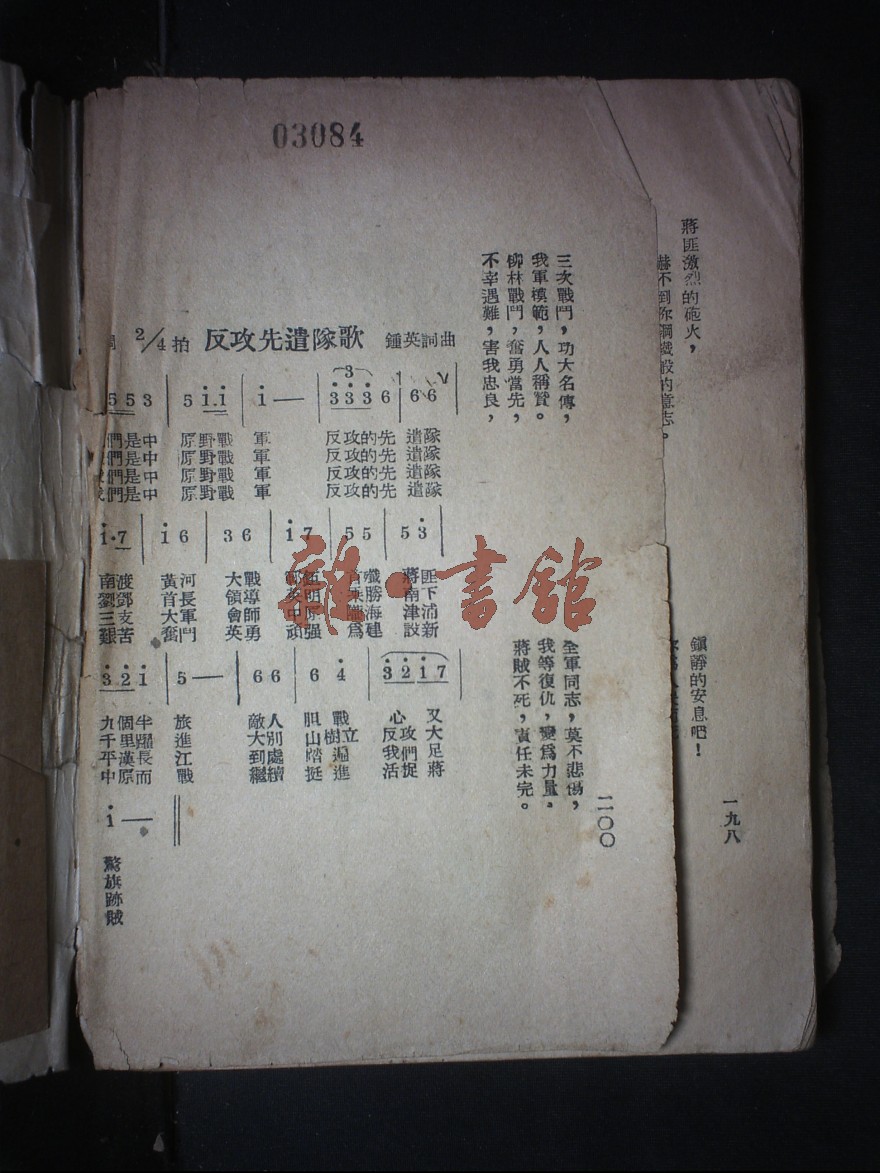 03084
蔣匪激烈的砲火，
赫不到你鋼鐵般的意志。
鎮靜的安息吧！
一九八
三次戰鬥，功大名傳，
我軍模範，人人稱贊。
柳林戰鬥，奮勇當先，
不幸遇難，害我忠良，
全軍同志，莫不悲傷，
我等復仇，變爲力量。
蔣賊不死，責任未完。
二〇〇
2/4 拍 反攻先遣隊歌 鍾英詞曲
5 5 3 | 5 i i | i — | 3 3 3 6 | 6 6 |
們是中 原野戰 軍 反攻的先 遣隊
們是中 原野戰 軍 反攻的先 遣隊
們是中 原野戰 軍 反攻的先 遣隊
們是中 原野戰 軍 反攻的先 遣隊
i·7 | i 6 | 3 6 | i 7 | 5 5 | 5 3 |
南渡 黃河 大戰 殲 蔣匪
劉鄧 首長 領導 英明 勝 南下
三支 大軍 會師 中原 隴海 津浦
艱苦 奮鬥 英勇 頑强 爲建 設新
3 2 i | 5 — | 6 6 | 6 4 | 3 2 i 7 |
九個半 旅 敵人 胆戰 心又
千里躍 進 大別 山樹立 反攻大
平漢長 江 到處 踏遍 我們足
中原而 戰 繼續 挺進 活捉蔣
i — ‖
驚
旗
跡
賊
雜·書館